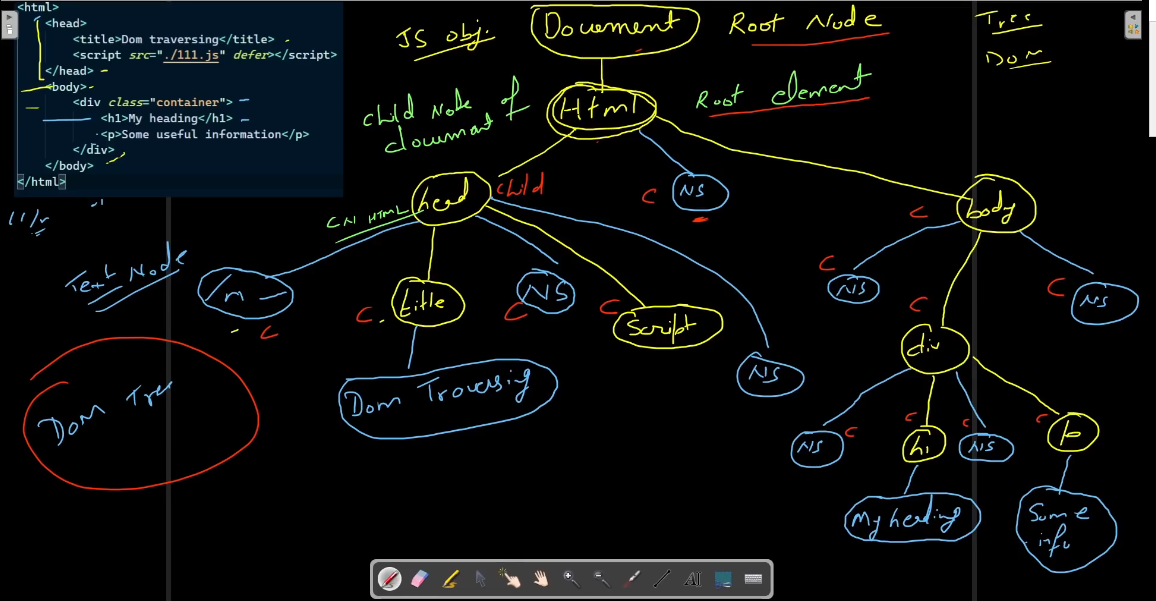 <html>
<head>
<title>Dom traversing</title>
<script src="./111.js" defer></script>
</head>
<body>
<div class="container">
<h1>My heading</h1>
<p>Some useful information</p>
</div>
</body>
</html>
JS obj.
Document
Root Node
Tree
Dom
child Node of
document
Html
Root element
CN HTML
head
child
C
NS
C
body
Text Node
/n
C
C
title
C
NS
C
script
NS
C
NS
C
NS
C
div
Dom Traversing
Dom Tree
NS
C
C
h1
C
NS
C
p
My heading
Some
info